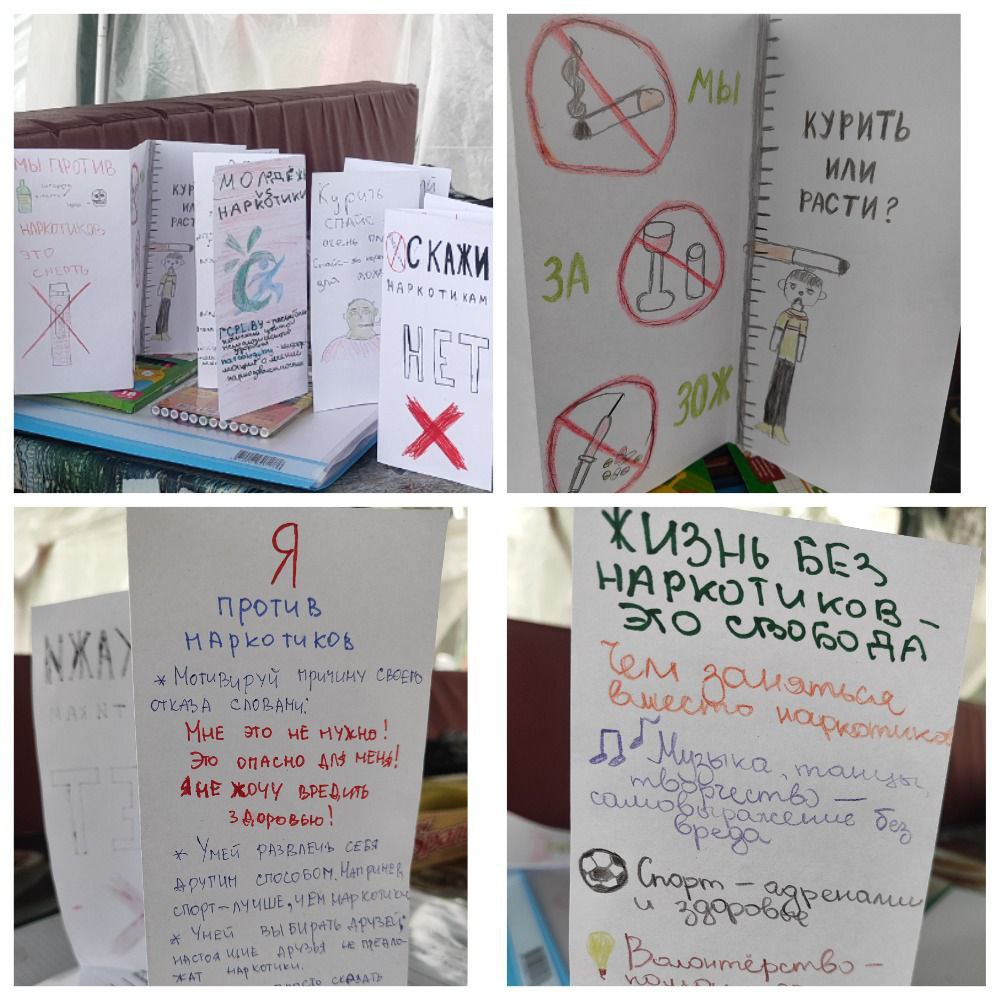 МЫ ПРОТИВ
НАРКОТИКОВ
ЭТО
СМЕРТЬ
КУР
ИЛ
РА
МОЛОДЁЖЬ
VS
НАРКОТИКИ
Курить
СПАЙС
ОЧЕНЬ
СКАЖИ
НАРКОТИКАМ
НЕТ
МЫ
ЗА
ЗОЖ
КУРИТЬ
ИЛИ
РАСТИ?
Я
ПРОТИВ
НАРКОТИКОВ
* Мотивируй причину своего
отказа словами:
Мне это не нужно!
Это опасно для меня!
Я не хочу вредить
здоровью!
* Умей развлечь себя
другим способом. Например,
спорт-лучше, чем наркотики
* Умей выбирать друзей:
настоящие друзья не предло-
жат наркотики.
просто сказать
ЖИЗНЬ БЕЗ
НАРКОТИКОВ –
ЭТО СВОБОДА
Чем заняться
вместо наркотиков
Музыка, танцы,
творчество –
самовыражение без
вреда
Спорт – адреналин
и здоровье
Волонтёрство –